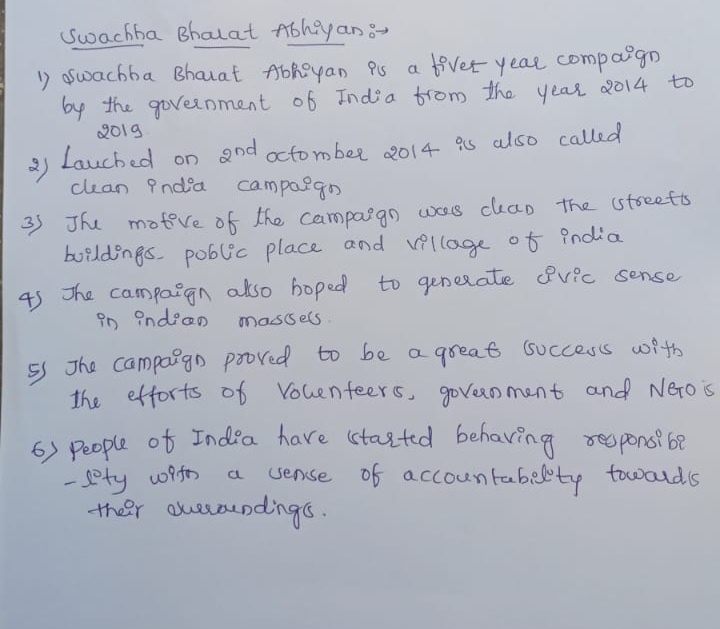 Swachha Bharat Abhiyan :→
1) Swachha Bharat Abhiyan is a fiver year compaign
by the government of India from the year 2014 to
2019
2) Lauched on 2nd octomber 2014 is also called
clean india campaign
3) The motive of the campaign was clean the streets
buildings. poblic place and village of india
4) The campaign also hoped to generate civic sense
in indian massses.
5) The campaign proved to be a great success with
the efforts of Volenteers, government and NGO's
6) People of India have started behaving responsibi
-lity with a sense of accountability towards
their surroundings.